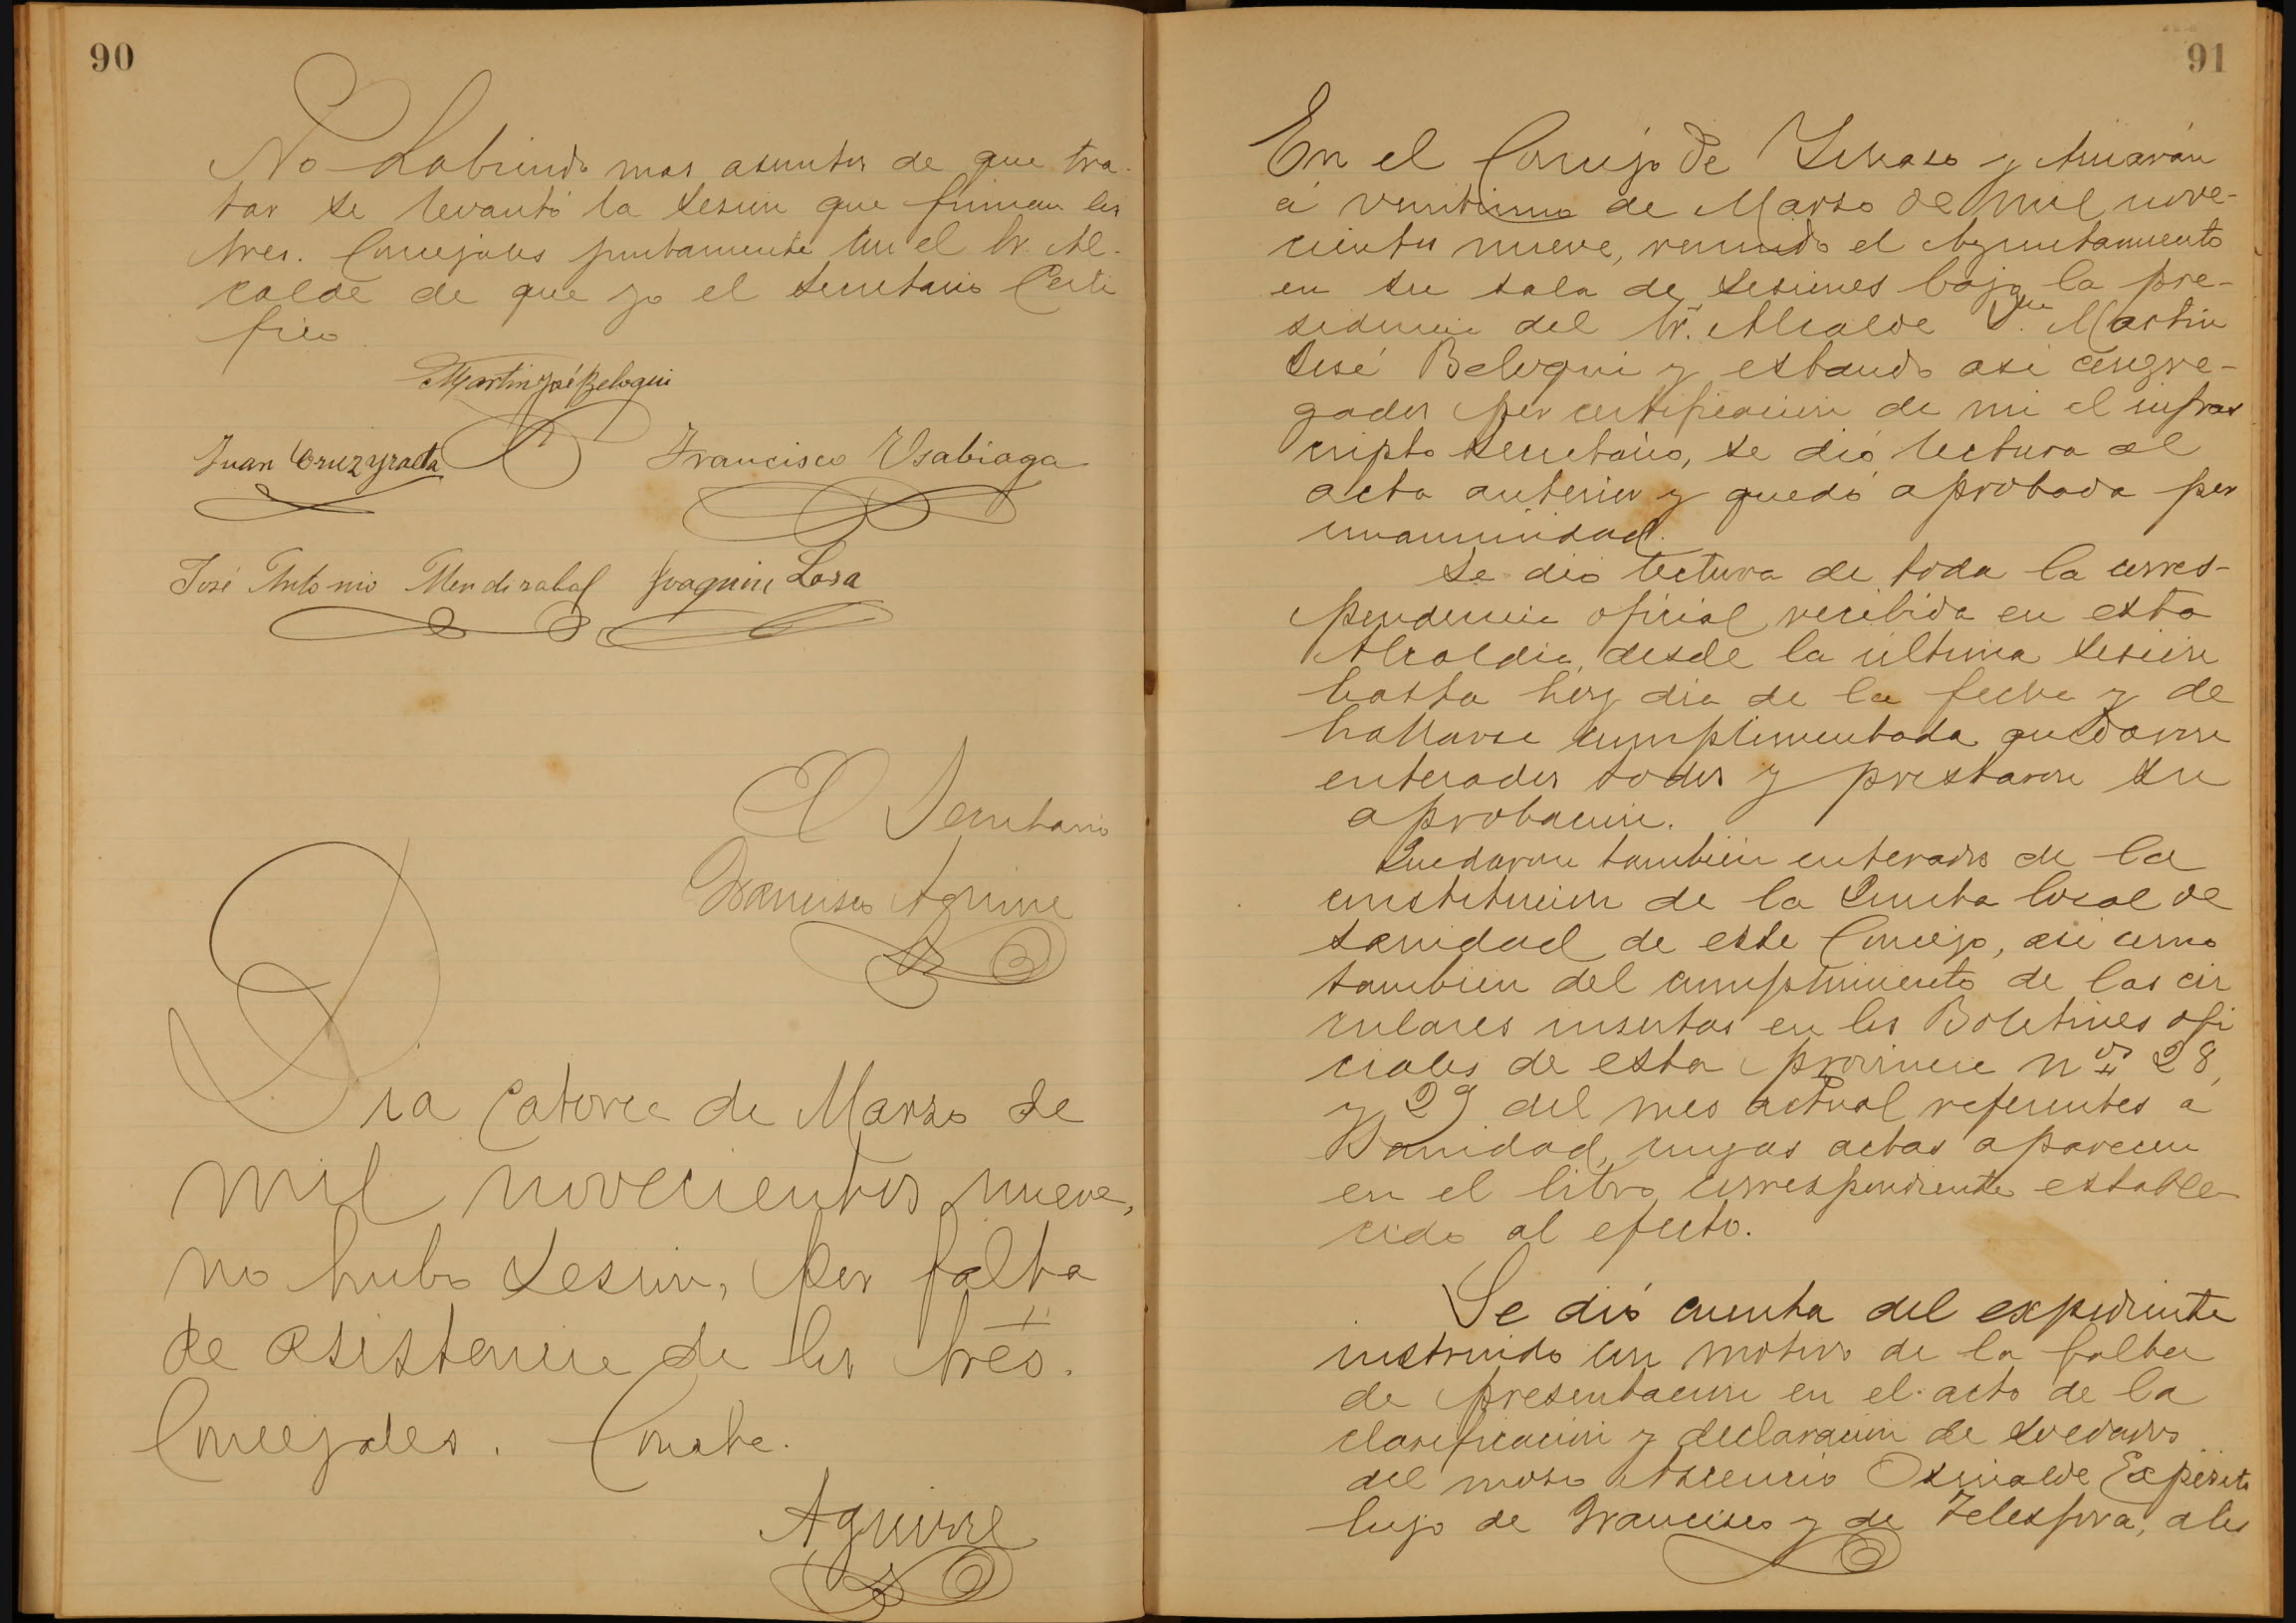 90
No habiendo mas asuntos de que tra-
tar se levantó la sesion que firman los
Sres. Concejales juntamente con el Sr. Al-
calde de que yo el Secretario Certi
fico
Martin José Beloqui
Juan Cruz Yraola
Francisco Usabiaga
José Antonio Mendizabal
Joaquin Lasa
El Secretario
Francisco Aguirre
Dia catorce de Marzo de
mil novecientos nueve,
no hubo sesion, por falta
de asistencia de los Sres.
Concejales. Conste.
Aguirre
91
En el Concejo de y
á veintiuno de Marzo de mil nove-
cientos nueve, reunido el Ayuntamiento
en su sala de sesiones bajo la pre-
sidencia del Sr. Alcalde Dn. Martin
José Beloqui y estando asi congre-
gados por certificacion de mi el infras
cripto Secretario, se dió lectura al
acta anterior y quedó aprobada por
unanimidad.
Se dió lectura de toda la corres-
pondencia oficial recibida en esta
Alcaldia, desde la última sesion
hasta hoy dia de la fecha y de
hallarse cumplimentada quedaron
enterados todos y prestaron su
aprobacion.
Quedaron tambien enterados de la
constitucion de la Junta local de
sanidad de este Concejo, asi como
tambien del cumplimiento de las cir
culares insertas en los Boletines ofi
ciales de esta provincia nos 28,
y 29 del mes actual referentes a
Sanidad, cuyas actas aparecen
en el libro correspondiente estable-
cido al efecto.
Se dió cuenta del expediente
instruido con motivo de la falta
de presentacion en el acto de la
clasificacion y declaracion de soldados
del mozo Ascencio Osinalde Expósito
hijo de Francisco y de Telesfora, a los